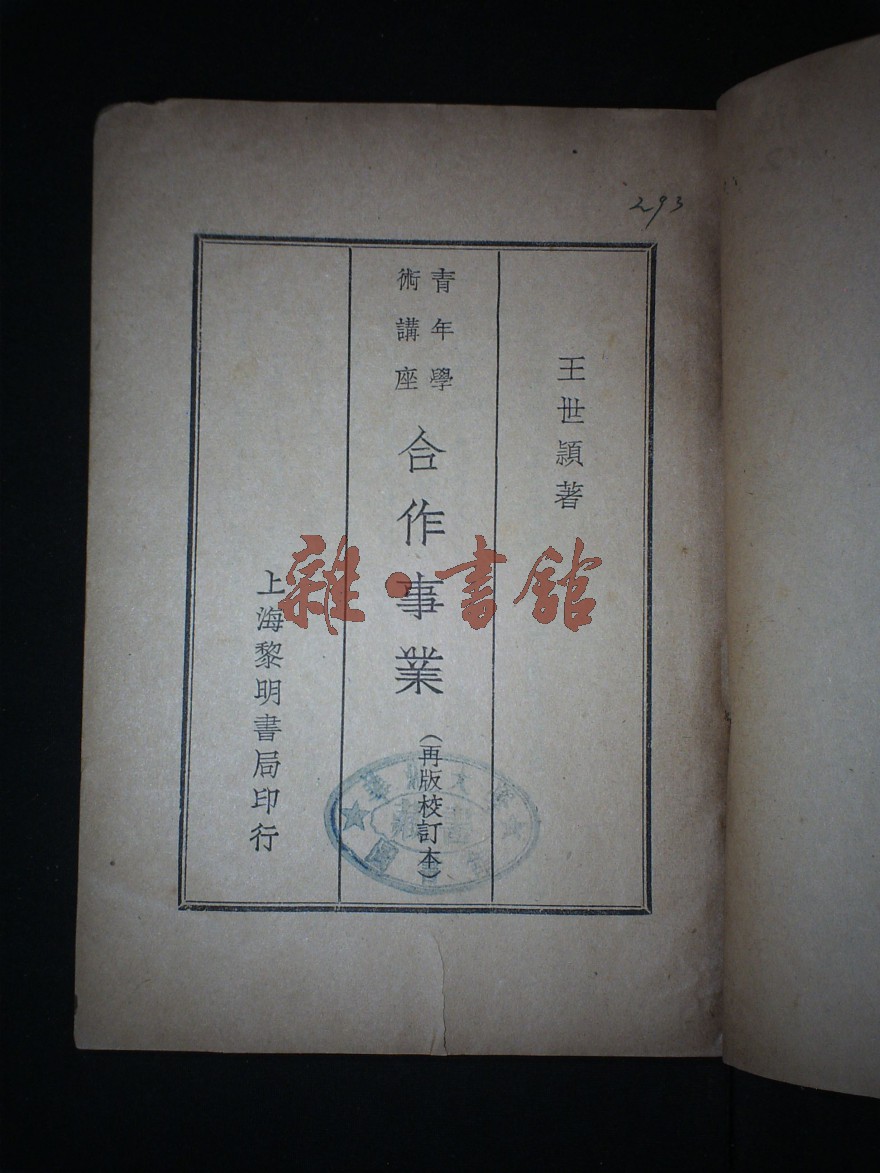 293
王世頴著
青年學
術講座
合作事業
（再版校訂本）
上海黎明書局印行
雜·書館